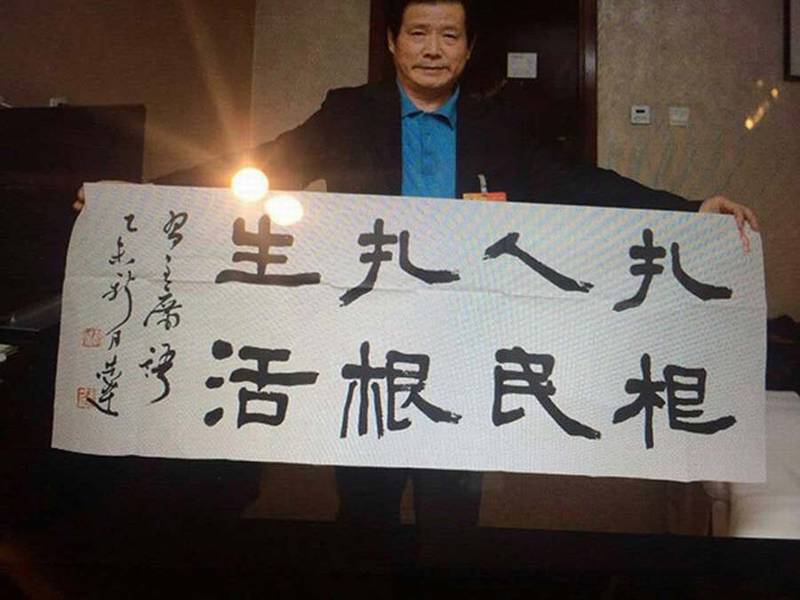 扎根
人民
扎根
生活
习主席语
乙未新月